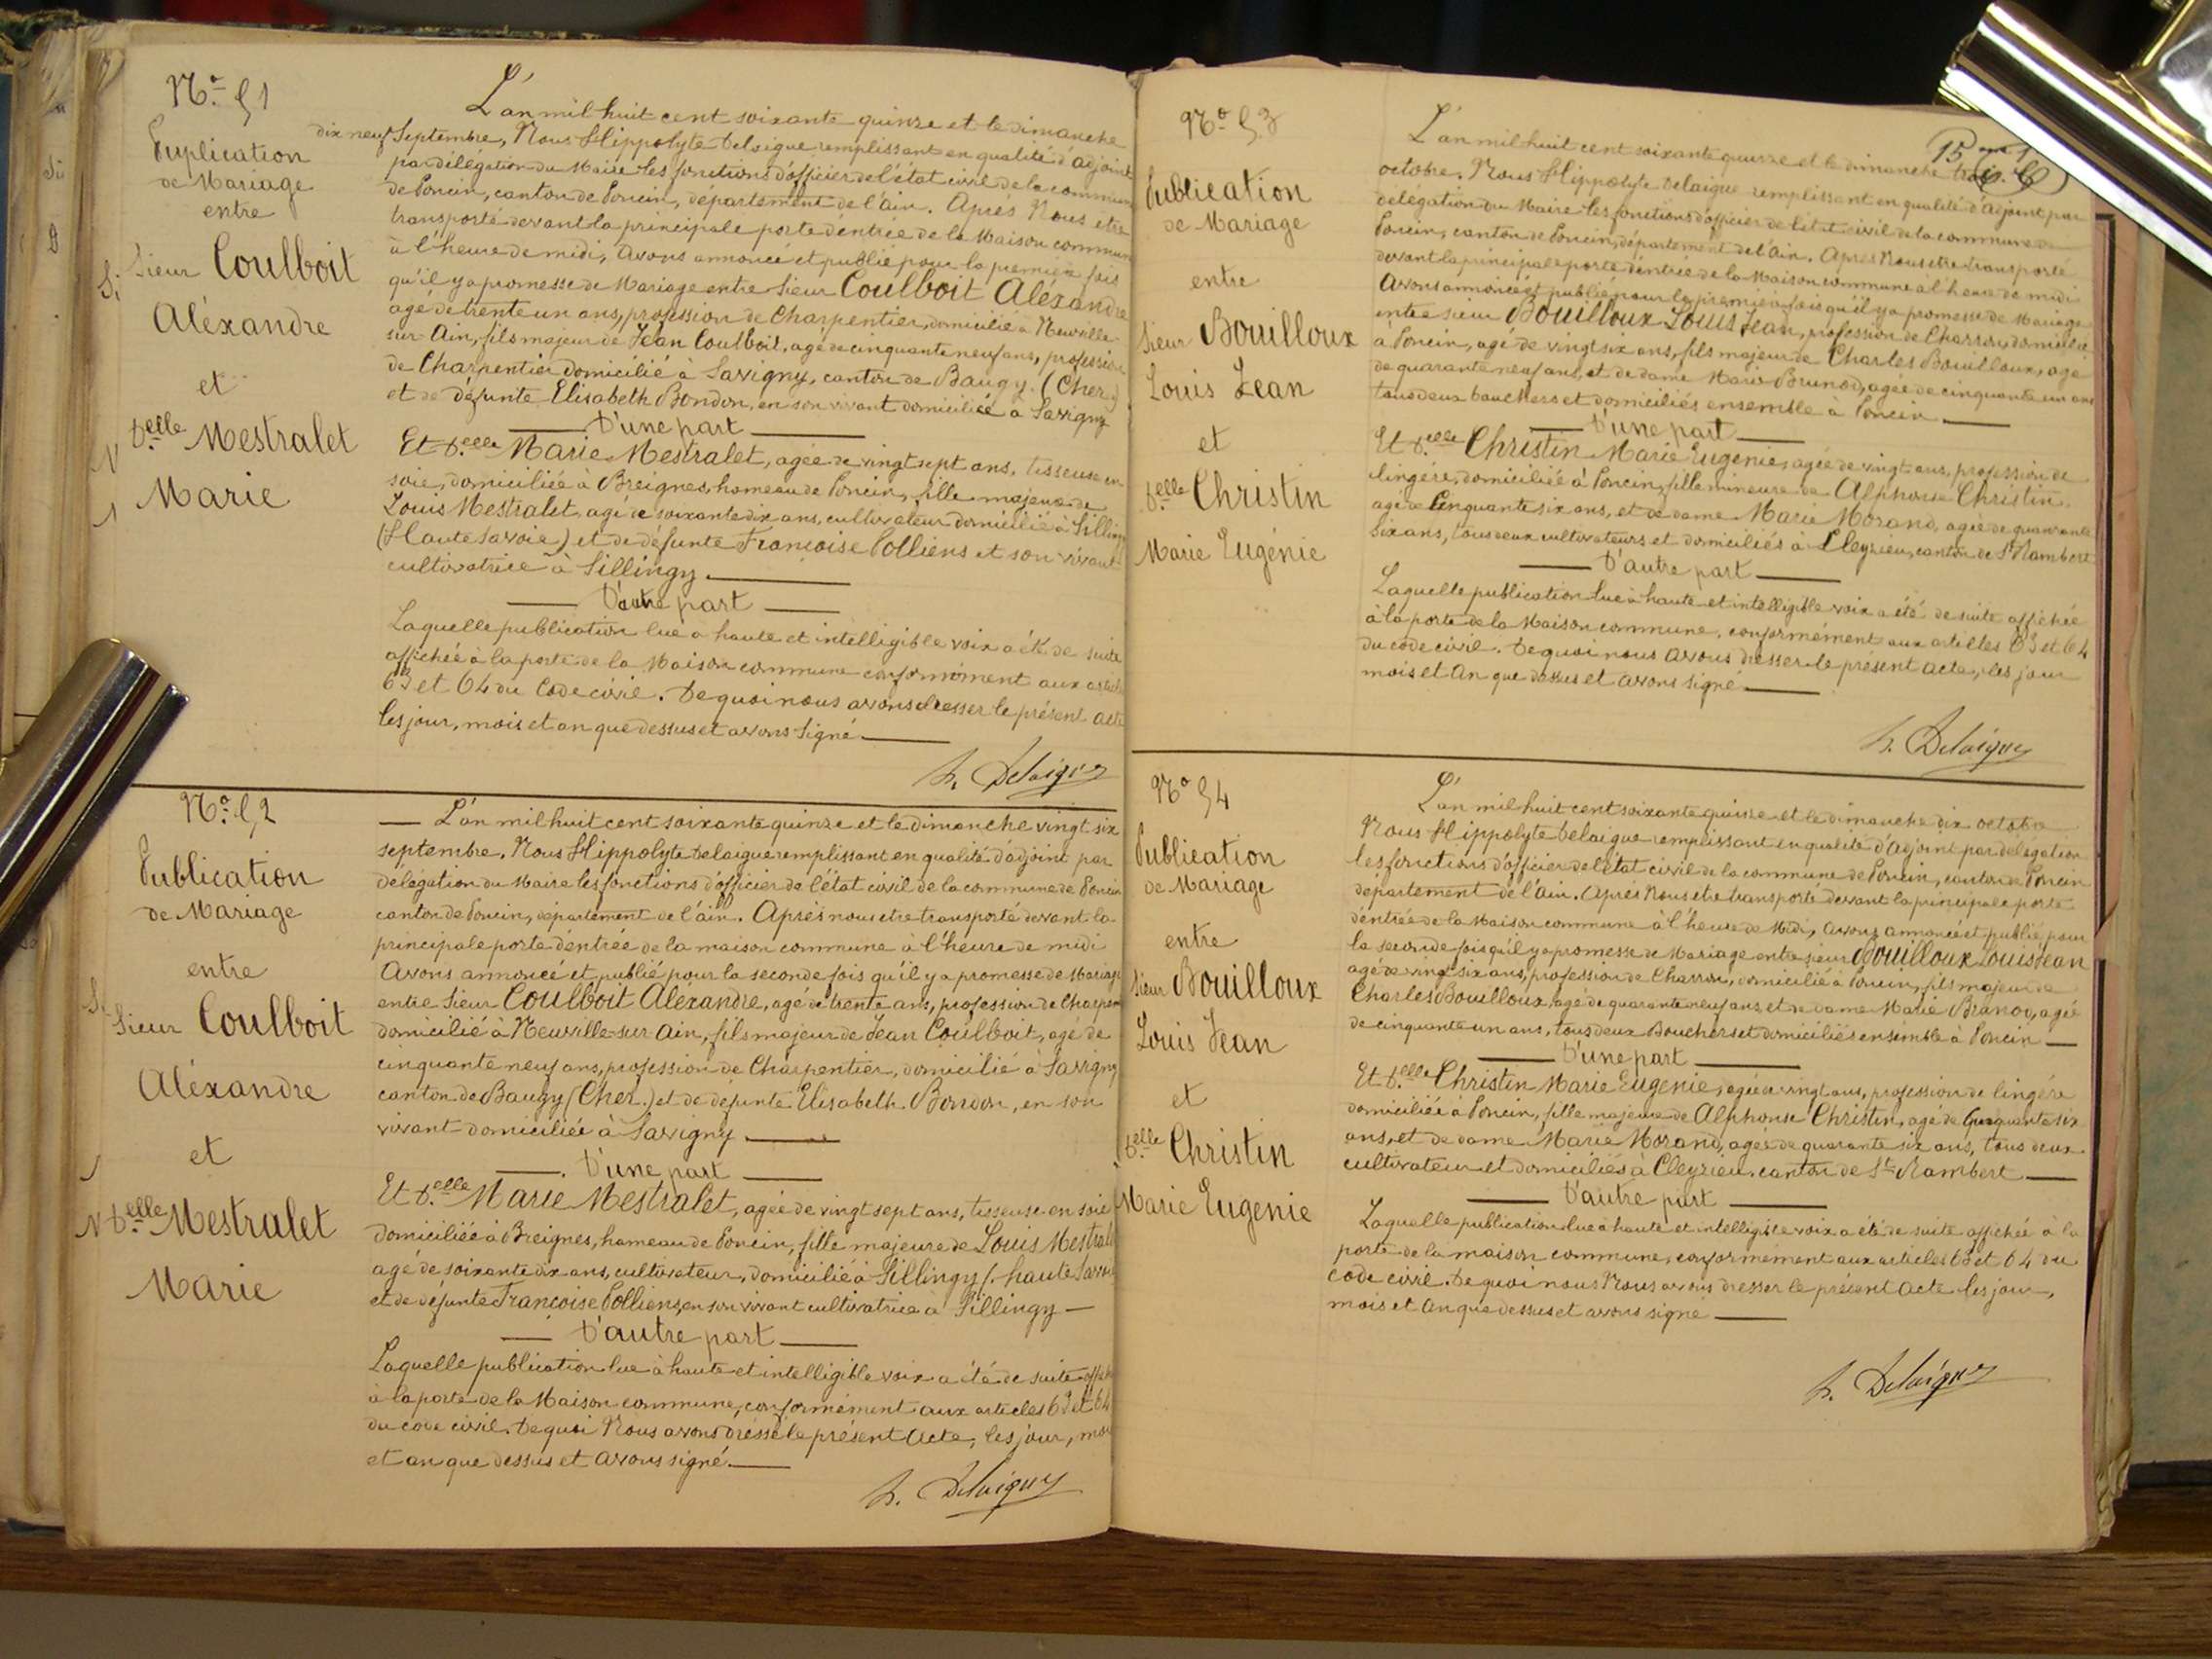 N.° 51
Publication
de Mariage
entre
Sieur Coulboit
Aléxandre
et
D.elle Mestralet
Marie
L'an mil huit cent soixante quinze et le dimanche
dix neuf Septembre, Nous Hippolyte Delaigue remplissant en qualité d'adjoint
par délégation du Maire les fonctions d'officier de l'état civil de la commune
de Poncin, canton de Poncin, département de l'ain. Après Nous etre
transporté devant la principale porte d'entrée de la Maison commune
à l'heure de midi, Avons annoncé et publié pour la première fois
qu'il y a promesse de Mariage entre Sieur Coulboit Aléxandre
agé de trente un ans, profession de Charpentier, domicilié à Neuville
sur Ain, fils majeur de Jean Coulboit, agé de cinquante neuf ans, profession
de Charpentier domicilié à Savigny, canton de Baugy. (Cher)
et de défunte Elisabeth Bondon, en son vivant domiciliée à Savigny
D'une part
Et D.elle Marie Mestralet, agée de vingt sept ans, tisseuse en
soie, domiciliée à Breignes, hameau de Poncin, fille majeure de
Louis Mestralet, agé de soixante dix ans, cultivateur domicilié à Silling
(Haute Savoie) et de défunte Françoise Colliens et son vivant
cultivatrice à Sillingy.
D'autre part
Laquelle publication lue à haute et intelligible voix a été de suite
affichée à la porte de la Maison commune conformément aux articles
63 et 64 du Code civil. De quoi nous avons dresser le présent acte
les jour, mois et an que dessus et avons signé.
h. Delaigue
N.° 52
Publication
de Mariage
entre
Sieur Coulboit
Aléxandre
et
D.elle Mestralet
Marie
L'an mil huit cent soixante quinze et le dimanche vingt six
septembre. Nous Hippolyte Delaigue remplissant en qualité d'adjoint par
délégation du Maire les fonctions d'officier de l'état civil de la commune de Poncin
canton de Poncin, département de l'ain. Après nous etre transporté devant la
principale porte d'entrée de la maison commune à l'heure de midi
Avons annoncé et publié pour la seconde fois qu'il y a promesse de Mariage
entre Sieur Coulboit Aléxandre, agé de trente ans, profession de Charpen
domicilié à Neuville-sur-Ain, fils majeur de Jean Coulboit, agé de
cinquante neuf ans, profession de Charpentier, domicilié à Savigny
canton de Baugy (Cher.) et de défunte Elisabeth Bondon, en son
vivant domiciliée à Savigny.
D'une part
Et D.elle Marie Mestralet, agée de vingt sept ans, tisseuse en soie
domiciliée à Breignes, hameau de Poncin, fille majeure de Louis Mestral
agé de soixante dix ans, cultivateur, domicilié à Sillingy (haute Savoi
et de défunte Françoise Colliens, en son vivant cultivatrice à Sillingy
D'autre part
Laquelle publication lue à haute et intelligible voix a été de suite affich
à la porte de la Maison commune, conformément aux articles 63 et 64
du code civil. De quoi Nous avons dressé le présent Acte, les jour, moi
et an que dessus et avons signé.
h. Delaigue
N.° 53
Publication
de Mariage
entre
Sieur Bouilloux
Louis Jean
et
D.elle Christin
Marie Eugénie
15
L'an mil huit cent soixante quinze et le dimanche trois
octobre. Nous Hippolyte Delaigue remplissant en qualité d'adjoint par
délégation du Maire les fonctions d'officier de l'état civil de la commune de
Poncin, canton de Poncin, département de l'Ain. Après Nous etre transporté
devant la principale porte d'entrée de la Maison commune à l'heure de midi
Avons annoncé et publié pour la première fois qu'il y a promesse de Mariage
entre sieur Bouilloux Louis Jean, profession de Charron, domicilié
à Poncin, agé de vingt six ans, fils majeur de Charles Bouilloux, agé
de quarante neuf ans, et de dame Marie Brunod, agée de cinquante un ans
tous deux bouchers et domiciliés ensemble à Poncin
D'une part
Et D.elle Christin Marie Eugénie, agée de vingt ans, profession de
lingère, domiciliée à Poncin, fille mineure de Alphonse Christin
agé de Cinquante six ans, et de dame Marie Morand, agée de quarante
six ans, tous deux cultivateurs et domiciliés à Cleyzieu, canton de St Rambert
D'autre part
Laquelle publication lue à haute et intelligible voix a été de suite affichée
à la porte de la Maison commune, conformément aux articles 63 et 64
du code civil. De quoi nous avons dresser le présent acte, les jour
mois et an que dessus et avons signé.
h. Delaigue
N° 54
Publication
de Mariage
entre
Sieur Bouilloux
Louis Jean
et
D.elle Christin
Marie Eugenie
L'an mil huit cent soixante quinze et le dimanche dix octobre
Nous Hippolyte Delaigue remplissant en qualité d'Adjoint par délégation
les fonctions d'officier de l'état civil de la commune de Poncin, canton de Poncin
département de l'Ain. Après Nous etre transporté devant la principale porte
d'entrée de la Maison commune à l'heure de Midi, avons annoncé et publié pour
la seconde fois qu'il y a promesse de Mariage entre sieur Bouilloux Louis Jean
agé de vingt six ans, profession de Charron, domicilié à Poncin, fils majeur de
Charles Bouilloux, agé de quarante neuf ans, et de dame Marie Brunod, agée
de cinquante un ans, tous deux Bouchers et domiciliés ensemble à Poncin
D'une part
Et D.elle Christin Marie Eugenie, agée de vingt ans, profession de lingère
domiciliée à Poncin, fille majeure de Alphonse Christin, agé de Cinquante six
ans, et de dame Marie Morand, agée de quarante six ans, tous deux
cultivateur et domiciliés à Cleyzieu, canton de St Rambert
D'autre part
Laquelle publication lue à haute et intelligible voix a été de suite affichée à la
porte de la maison commune, conformément aux articles 63 et 64 du
Code civil. De quoi nous Nous avons dresser le présent Acte les jour,
mois et an que dessus et avons signé
h. Delaigue